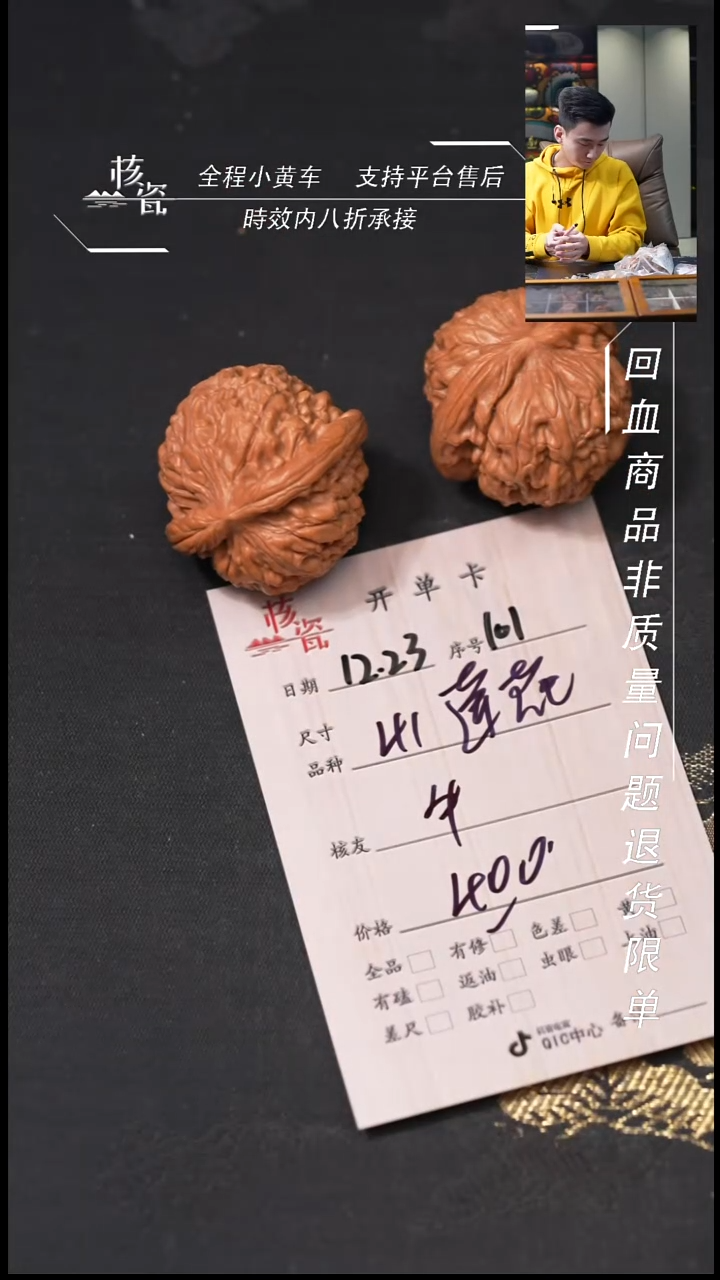 核瓷
全程小黄车 支持平台售后
時效内八折承接
回血商品非质量问题退货限单
核瓷
开单卡
日期 12.23 序号 101
尺寸
品种 41 莲花
核友 牛
价格 400.
全品 有修 色差
有磕 返油 虫眼 上油
差尺 胶补
QIC中心 备